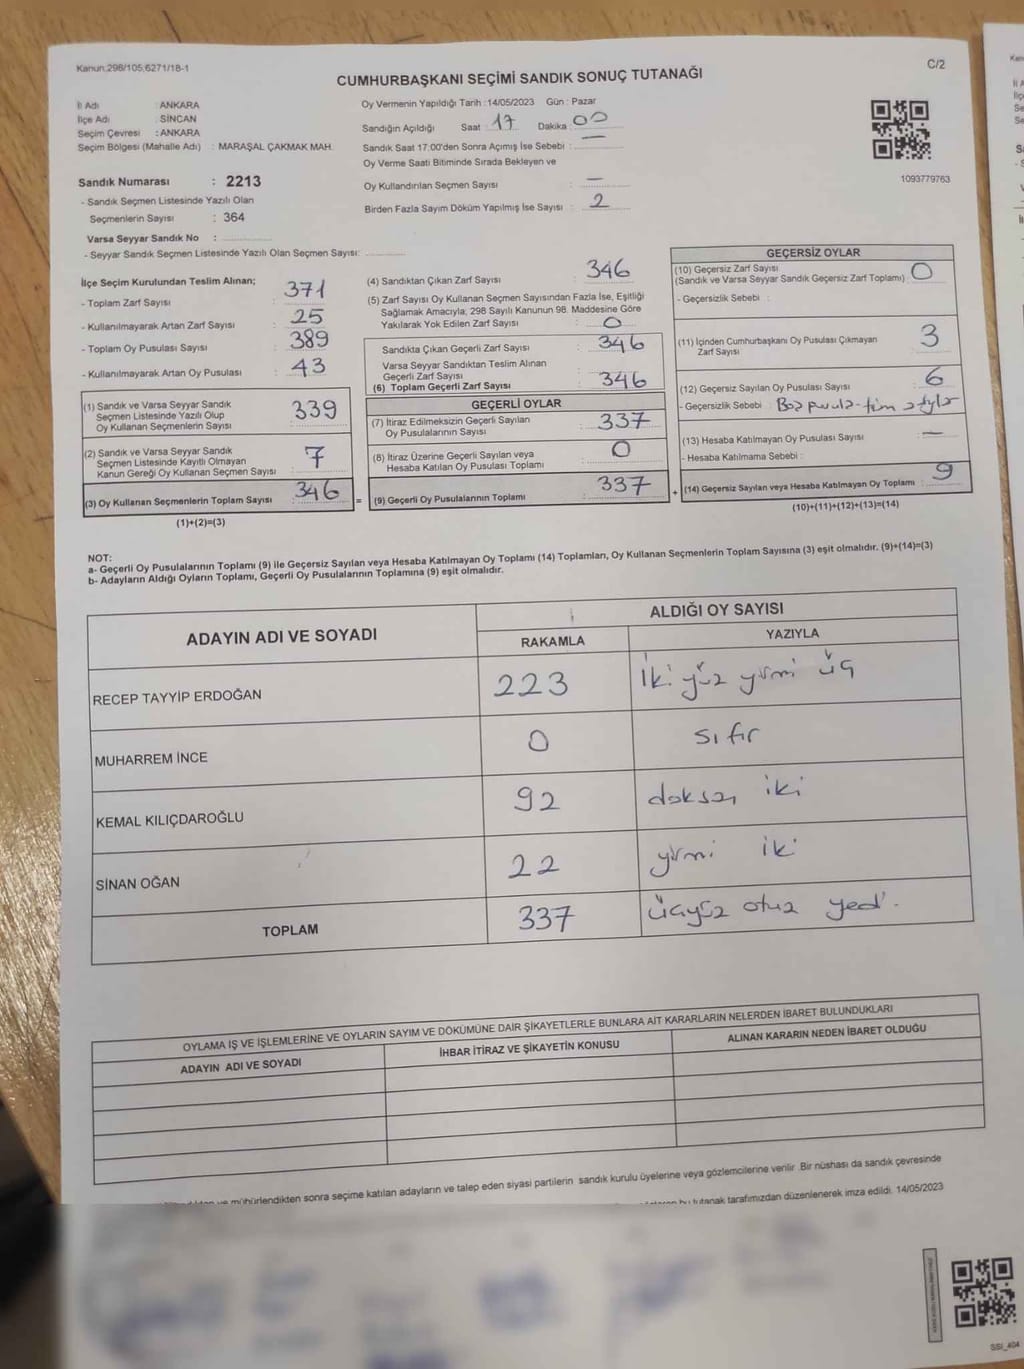 Kanun.298/105,6271/18-1
C/2
CUMHURBAŞKANI SEÇİMİ SANDIK SONUÇ TUTANAĞI
İl Adı : ANKARA
İlçe Adı : SİNCAN
Seçim Çevresi : ANKARA
Seçim Bölgesi (Mahalle Adı) : MARAŞAL ÇAKMAK MAH.
Oy Vermenin Yapıldığı Tarih : 14/05/2023 Gün : Pazar
Sandığın Açıldığı Saat : 17 Dakika : 00
Sandık Saat 17:00'den Sonra Açımış İse Sebebi : —
Oy Verme Saati Bitiminde Sırada Bekleyen ve
Oy Kullandırılan Seçmen Sayısı : —
Birden Fazla Sayım Döküm Yapılmış İse Sayısı : 2
1093779763
Sandık Numarası : 2213
- Sandık Seçmen Listesinde Yazılı Olan
Seçmenlerin Sayısı : 364
Varsa Seyyar Sandık No :
- Seyyar Sandık Seçmen Listesinde Yazılı Olan Seçmen Sayısı:
İlçe Seçim Kurulundan Teslim Alınan;
- Toplam Zarf Sayısı : 371
- Kullanılmayarak Artan Zarf Sayısı : 25
- Toplam Oy Pusulası Sayısı : 389
- Kullanılmayarak Artan Oy Pusulası : 43
(1) Sandık ve Varsa Seyyar Sandık
Seçmen Listesinde Yazılı Olup
Oy Kullanan Seçmenlerin Sayısı : 339
(2) Sandık ve Varsa Seyyar Sandık
Seçmen Listesinde Kayıtlı Olmayan
Kanun Gereği Oy Kullanan Seçmen Sayısı : 7
(3) Oy Kullanan Seçmenlerin Toplam Sayısı : 346
(1)+(2)=(3)
=
(4) Sandıktan Çıkan Zarf Sayısı : 346
(5) Zarf Sayısı Oy Kullanan Seçmen Sayısından Fazla İse, Eşitliği
Sağlamak Amacıyla, 298 Sayılı Kanunun 98. Maddesine Göre
Yakılarak Yok Edilen Zarf Sayısı : 0
Sandıkta Çıkan Geçerli Zarf Sayısı : 346
Varsa Seyyar Sandıktan Teslim Alınan
Geçerli Zarf Sayısı
(6) Toplam Geçerli Zarf Sayısı : 346
GEÇERLİ OYLAR
(7) İtiraz Edilmeksizin Geçerli Sayılan
Oy Pusulalarının Sayısı : 337
(8) İtiraz Üzerine Geçerli Sayılan veya
Hesaba Katılan Oy Pusulası Toplamı : 0
(9) Geçerli Oy Pusulalarının Toplamı : 337
+
GEÇERSİZ OYLAR
(10) Geçersiz Zarf Sayısı
(Sandık ve Varsa Seyyar Sandık Geçersiz Zarf Toplamı) : 0
- Geçersizlik Sebebi :
(11) İçinden Cumhurbaşkanı Oy Pusulası Çıkmayan
Zarf Sayısı : 3
(12) Geçersiz Sayılan Oy Pusulası Sayısı : 6
- Geçersizlik Sebebi : Boş pusula-tüm
(13) Hesaba Katılmayan Oy Pusulası Sayısı : —
- Hesaba Katılmama Sebebi :
(14) Geçersiz Sayılan veya Hesaba Katılmayan Oy Toplamı : 9
(10)+(11)+(12)+(13)=(14)
NOT:
a- Geçerli Oy Pusulalarının Toplamı (9) ile Geçersiz Sayılan veya Hesaba Katılmayan Oy Toplamı (14) Toplamları, Oy Kullanan Seçmenlerin Toplam Sayısına (3) eşit olmalıdır. (9)+(14)=(3)
b- Adayların Aldığı Oyların Toplamı, Geçerli Oy Pusulalarının Toplamına (9) eşit olmalıdır.
ADAYIN ADI VE SOYADI
ALDIĞI OY SAYISI
RAKAMLA YAZIYLA
RECEP TAYYİP ERDOĞAN 223 İki yüz yirmi üç
MUHARREM İNCE 0 sıfır
KEMAL KILIÇDAROĞLU 92 doksan iki
SİNAN OĞAN 22 yirmi iki
TOPLAM 337 üçyüz otuz yedi.
OYLAMA İŞ VE İŞLEMLERİNE VE OYLARIN SAYIM VE DÖKÜMÜNE DAİR ŞİKAYETLERLE BUNLARA AİT KARARLARIN NELERDEN İBARET BULUNDUKLARI
ADAYIN ADI VE SOYADI İHBAR İTİRAZ VE ŞİKAYETİN KONUSU ALINAN KARARIN NEDEN İBARET OLDUĞU
ve mühürlendikten sonra seçime katılan adayların ve talep eden siyasi partilerin sandık kurulu üyelerine veya gözlemcilerine verilir .Bir nüshası da sandık çevresinde
bu tutanak tarafımızdan düzenlenerek imza edildi. 14/05/2023
SSI_404